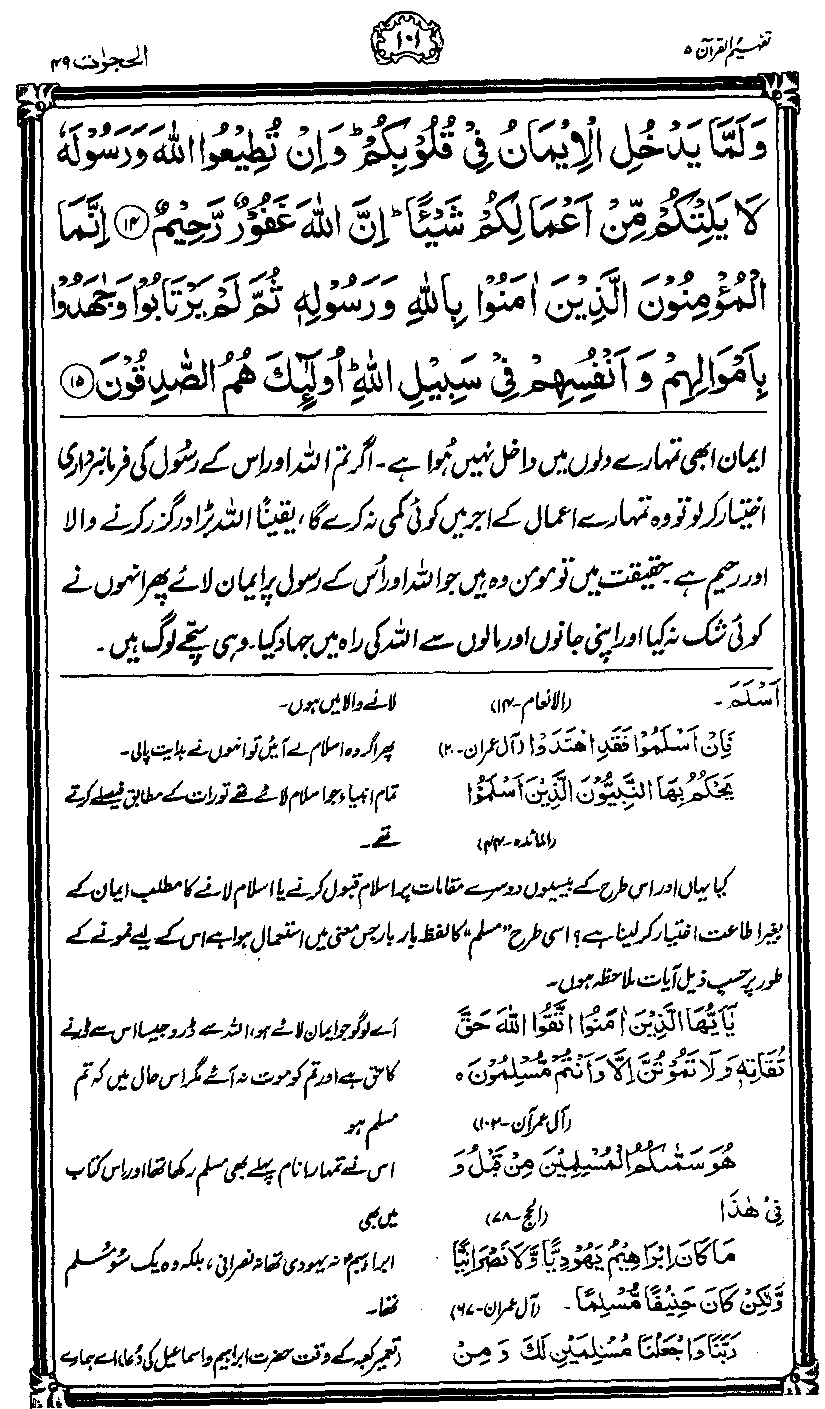 تفہیم القرآن ۵
۱۰۱
الحجرٰت ۴۹
وَلَمَّا يَدْخُلِ الْاِيْمَانُ فِيْ قُلُوْبِكُمْ ؕ وَاِنْ تُطِيْعُوا اللّٰهَ وَرَسُوْلَهٗ
لَا يَلِتْكُمْ مِّنْ اَعْمَالِكُمْ شَيْـًٔا ؕ اِنَّ اللّٰهَ غَفُوْرٌ رَّحِيْمٌ ۝۱۴ اِنَّمَا
الْمُؤْمِنُوْنَ الَّذِيْنَ اٰمَنُوْا بِاللّٰهِ وَرَسُوْلِهٖ ثُمَّ لَمْ يَرْتَابُوْا وَجٰهَدُوْا
بِاَمْوَالِهِمْ وَاَنْفُسِهِمْ فِيْ سَبِيْلِ اللّٰهِ ؕ اُولٰٓئِكَ هُمُ الصّٰدِقُوْنَ ۝۱۵
ایمان ابھی تمہارے دلوں میں داخل نہیں ہُوا ہے۔ اگر تم اللہ اور اس کے رسُول کی فرمانبرداری
اختیار کر لو تو وہ تمہارے اعمال کے اجر میں کوئی کمی نہ کرے گا، یقیناً اللہ بڑا درگزر کرنے والا
اور رحیم ہے۔ حقیقت میں تو مومن وہ ہیں جو اللہ اور اُس کے رسول پر ایمان لائے پھر انہوں نے
کوئی شک نہ کیا اور اپنی جانوں اور مالوں سے اللہ کی راہ میں جہاد کیا۔ وہی سچّے لوگ ہیں۔
اَسْلَمَ۔ (الانعام-۱۴) لانے والا میں ہوں۔
فَاِنْ اَسْلَمُوْا فَقَدِ اهْتَدَوْا (آل عمران-۲۰) پھر اگر وہ اسلام لے آئیں تو انہوں نے ہدایت پالی۔
يَحْكُمُ بِهَا النَّبِيُّوْنَ الَّذِيْنَ اَسْلَمُوْا تمام انبیاء جو اسلام لائے تھے تورات کے مطابق فیصلے کرتے
(المائدہ-۴۴) تھے۔
کیا یہاں اور اس طرح کے بیسیوں دوسرے مقامات پر اسلام قبول کرنے یا اسلام لانے کا مطلب ایمان کے
بغیر اطاعت اختیار کر لینا ہے؟ اسی طرح "مسلم" کا لفظ بار بار جس معنی میں استعمال ہوا ہے اس کے لیے نمونے کے
طور پر حسبِ ذیل آیات ملاحظہ ہوں۔
يٰٓاَيُّهَا الَّذِيْنَ اٰمَنُوا اتَّقُوا اللّٰهَ حَقَّ اے لوگو جو ایمان لائے ہو، اللہ سے ڈرو جیسا اس سے ڈرنے
تُقَاتِهٖ وَلَا تَمُوْتُنَّ اِلَّا وَاَنْتُمْ مُّسْلِمُوْنَ ۝ کا حق ہے اور تم کو موت نہ آئے مگر اس حال میں کہ تم
(آل عمرآن-۱۰۲) مسلم ہو
هُوَ سَمّٰىكُمُ الْمُسْلِمِيْنَ مِنْ قَبْلُ وَ اس نے تمہارا نام پہلے بھی مسلم رکھا تھا اور اس کتاب
فِيْ هٰذَا (الحج-۷۸) میں بھی
مَا كَانَ اِبْرَاهِيْمُ يَهُوْدِيًّا وَّلَا نَصْرَانِيًّا ابراہیمؑ نہ یہودی تھا نہ نصرانی، بلکہ وہ یک سُو مُسلم
وَّلٰكِنْ كَانَ حَنِيْفًا مُّسْلِمًا۔ (آل عمران-۶۷) تھا۔
رَبَّنَا وَاجْعَلْنَا مُسْلِمَيْنِ لَكَ وَمِنْ (تعمیر کعبہ کے وقت حضرت ابراہیم و اسماعیل کی دُعا) اے ہمارے